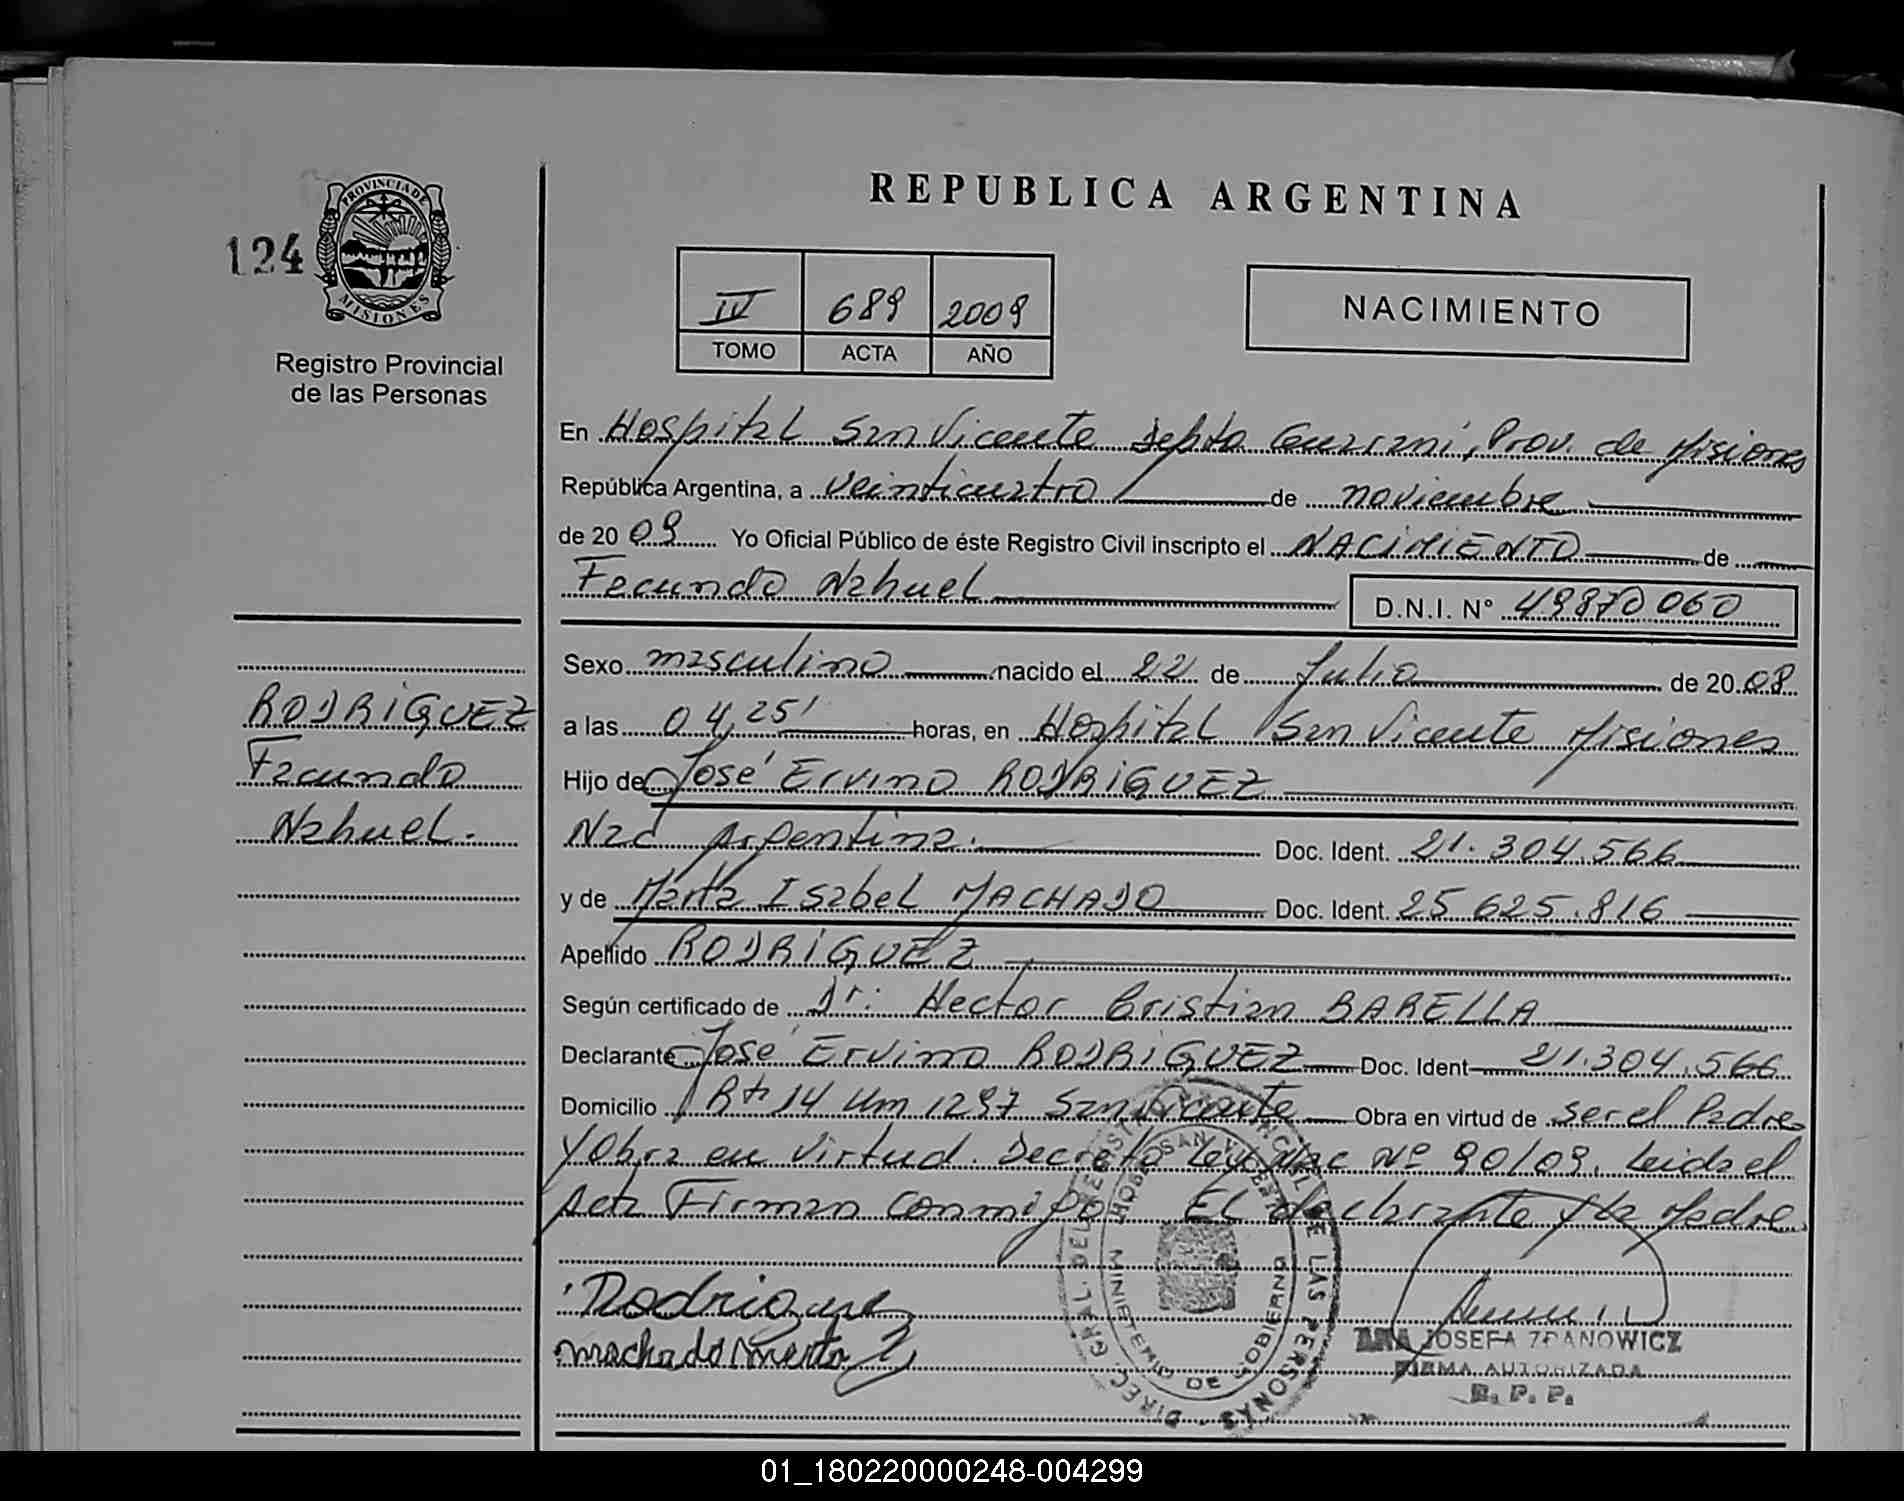 REPUBLICA ARGENTINA
124
PROVINCIA DE
MISIONES
Registro Provincial
de las Personas
IV 689 2009
TOMO ACTA AÑO
NACIMIENTO
En Hospital San Vicente Depto Guarani, Prov. de Misiones
República Argentina, a veinticuatro de noviembre
de 20 09 Yo Oficial Público de éste Registro Civil inscripto el NACIMIENTO de
Facundo Nahuel D.N.I. N° 49870060
Sexo masculino nacido el 22 de Julio de 20 08
a las 04,25' horas, en Hospital San Vicente Misiones
Hijo de José Ervino RODRIGUEZ
Nac Argentina. Doc. Ident. 21.304.566
y de Marta Isabel MACHADO Doc. Ident. 25 625.816
Apellido RODRIGUEZ
Según certificado de Dr: Hector Cristian BARELLA
Declarante José Ervino RODRIGUEZ Doc. Ident 21.304.566
Domicilio Rta 14 Km 1297 San Vicente Obra en virtud de ser el Padre
y Obra en virtud. Decreto Ley Nac Nº 90/09. Leida el
Acta Firman conmigo El declarante y la Madre.
RODRIGUEZ
Facundo
Nahuel.
Rodriguez
machado marta I
DIREC. GRAL. DEL REGISTRO PROVINCIAL DE LAS PERSONAS
HOSP. SAN VICENTE
MINISTERIO DE GOBIERNO
ANA JOSEFA ZDANOWICZ
FIRMA AUTORIZADA
R. P. P.
01_180220000248-004299